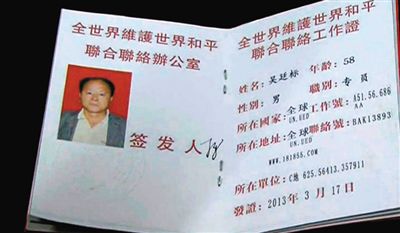 全世界維護世界和平
聯合聯絡辦公室
签发人
全世界維護世界和平
聯合聯絡工作證
姓名 吴廷标 年龄：58
性别 男 職别 专員
所在國家：全球工作號：A51.56.686
UN.UED AA
所在地址：全球聯絡號：BAK13893
UN.UED
www.181855.COM
所在單位：C地 625.56413.357911
發證：2013年 3月 17日